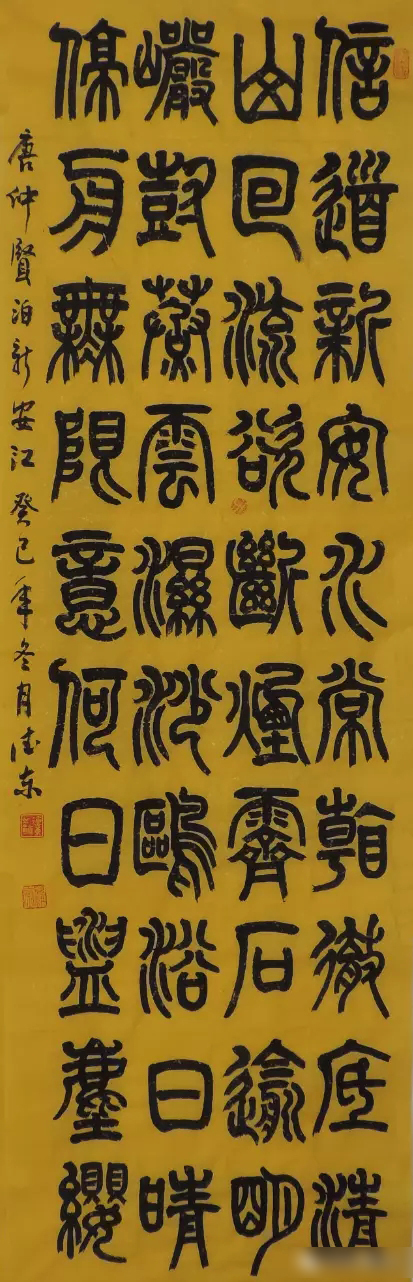 信道新安水常朝徹底清
山回流欲斷煙霽石逾明
巖鼓蒸雲濕沙鷗浴日晴
舟無限意何日盥塵纓
唐仲賢泊新安江癸巳年冬月德東